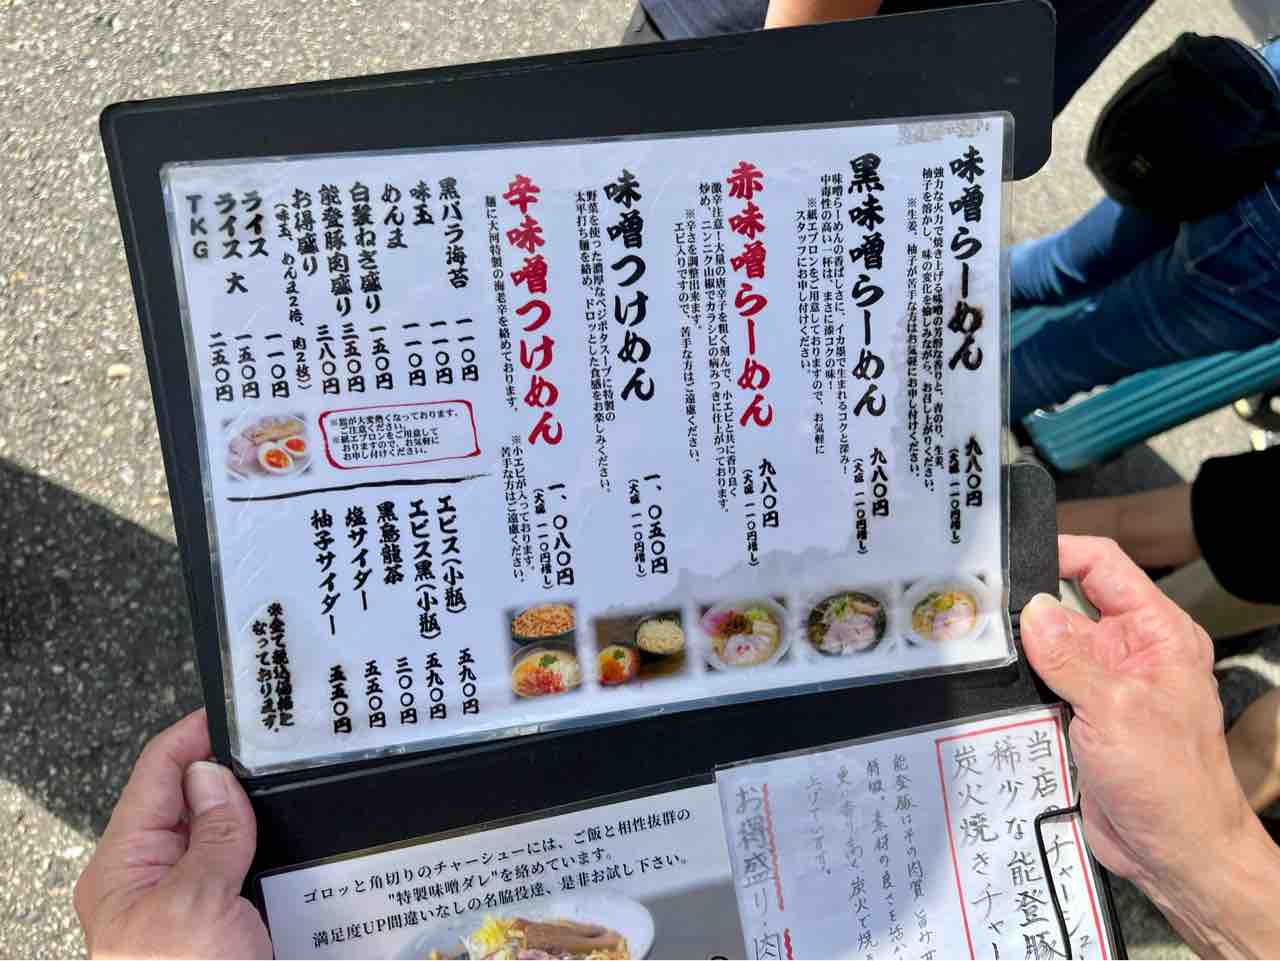 味噌らーめん
強力な火力で焼き上げる味噌の芳醇な香りと、青のり、生姜、
柚子を溶かし、味の変化を愉しみながら、お召し上がりください。
※生姜、柚子が苦手な方はお気軽にお申し付けください。
九八〇円
(大盛 一一〇円増し)
黒味噌らーめん
味噌らーめんの香ばしさに、イカ墨で生まれるコクと深み!
中毒性の高い一杯は、まさに漆コクの味!
※紙エプロンをご用意しておりますので、お気軽に
スタッフにお申し付けください。
九八〇円
(大盛 一一〇円増し)
赤味噌らーめん
激辛注意!大量の唐辛子を粗く刻んで、小エビと共に香り良く
炒め、ニンニク山椒でカラシビの病みつきに仕上がっております。
※辛さを調整出来ます。
エビ入りですので、苦手な方はご遠慮ください。
九八〇円
(大盛 一一〇円増し)
味噌つけめん
野菜を使った濃厚なベジポタスープに特製の
太平打ち麺を絡め、ドロッとした食感をお楽しみください。
一、〇五〇円
(大盛 一一〇円増し)
辛味噌つけめん
麺に大河特製の海老辛を絡めております。
※小エビが入っております。
苦手な方はご遠慮ください。
一、〇八〇円
(大盛 一一〇円増し)
黒バラ海苔 一一〇円
味玉 一一〇円
めんま 一一〇円
白髪ねぎ盛り 一五〇円
能登豚肉盛り 三五〇円
お得盛り 三八〇円
(味玉、めんま2倍、肉2枚)
ライス 一一〇円
ライス 大 一五〇円
TKG 二五〇円
※器が大変熱くなっております。
ご注意ください。
※紙エプロンをご用意して
おりますので、お気軽に
お申し付けください。
エビス(小瓶) 五九〇円
エビス黒(小瓶) 五九〇円
黒烏龍茶 三〇〇円
塩サイダー 五五〇円
柚子サイダー 五五〇円
※全て税込価格と
なっております。
当店のチャーシュー
稀少な能登豚
炭火焼きチャー
能登豚は
特徴。素材の良さを活か
更に香り高く炭火で焼き
上げています。
お得盛り・肉
ゴロッと角切りのチャーシューには、ご飯と相性抜群の
"特製味噌ダレ"を絡めています。
満足度UP間違いなしの名脇役達、是非お試し下さい。